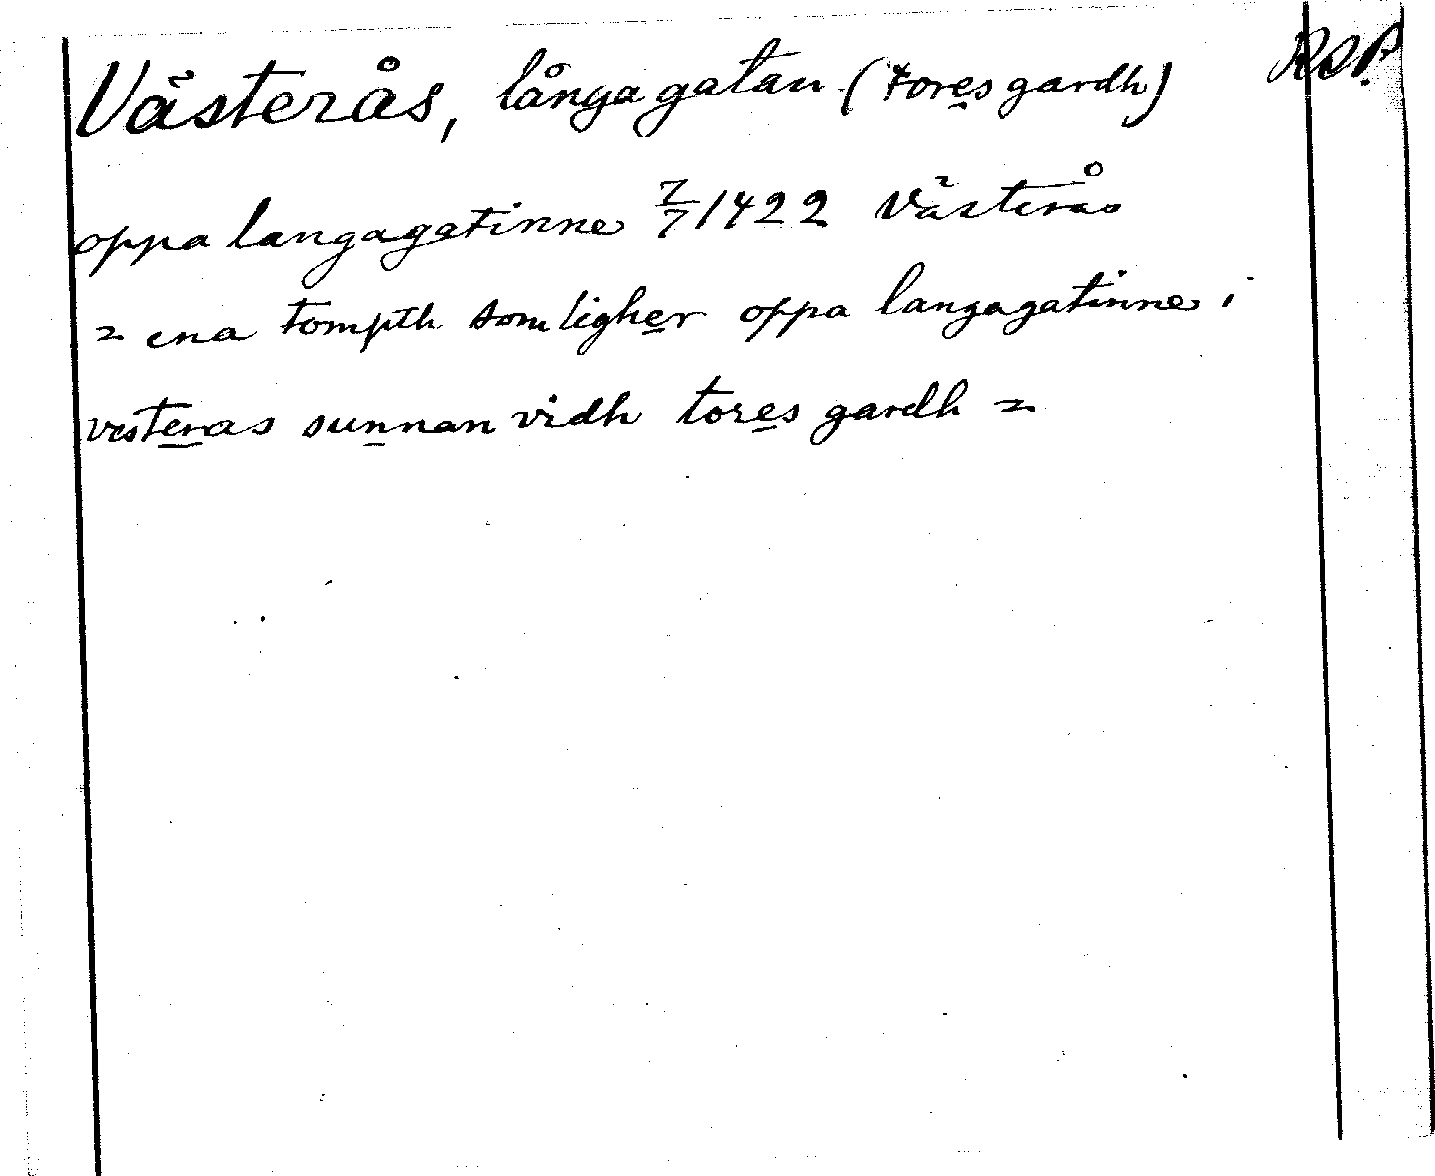 Västerås, långa gatan (tores gardh) RAP.
oppa langagatinne 7/7 1422 Västerås
= ena tompth som ligher oppa langagatinne i
vesteras sunnan vidh tores gardh =